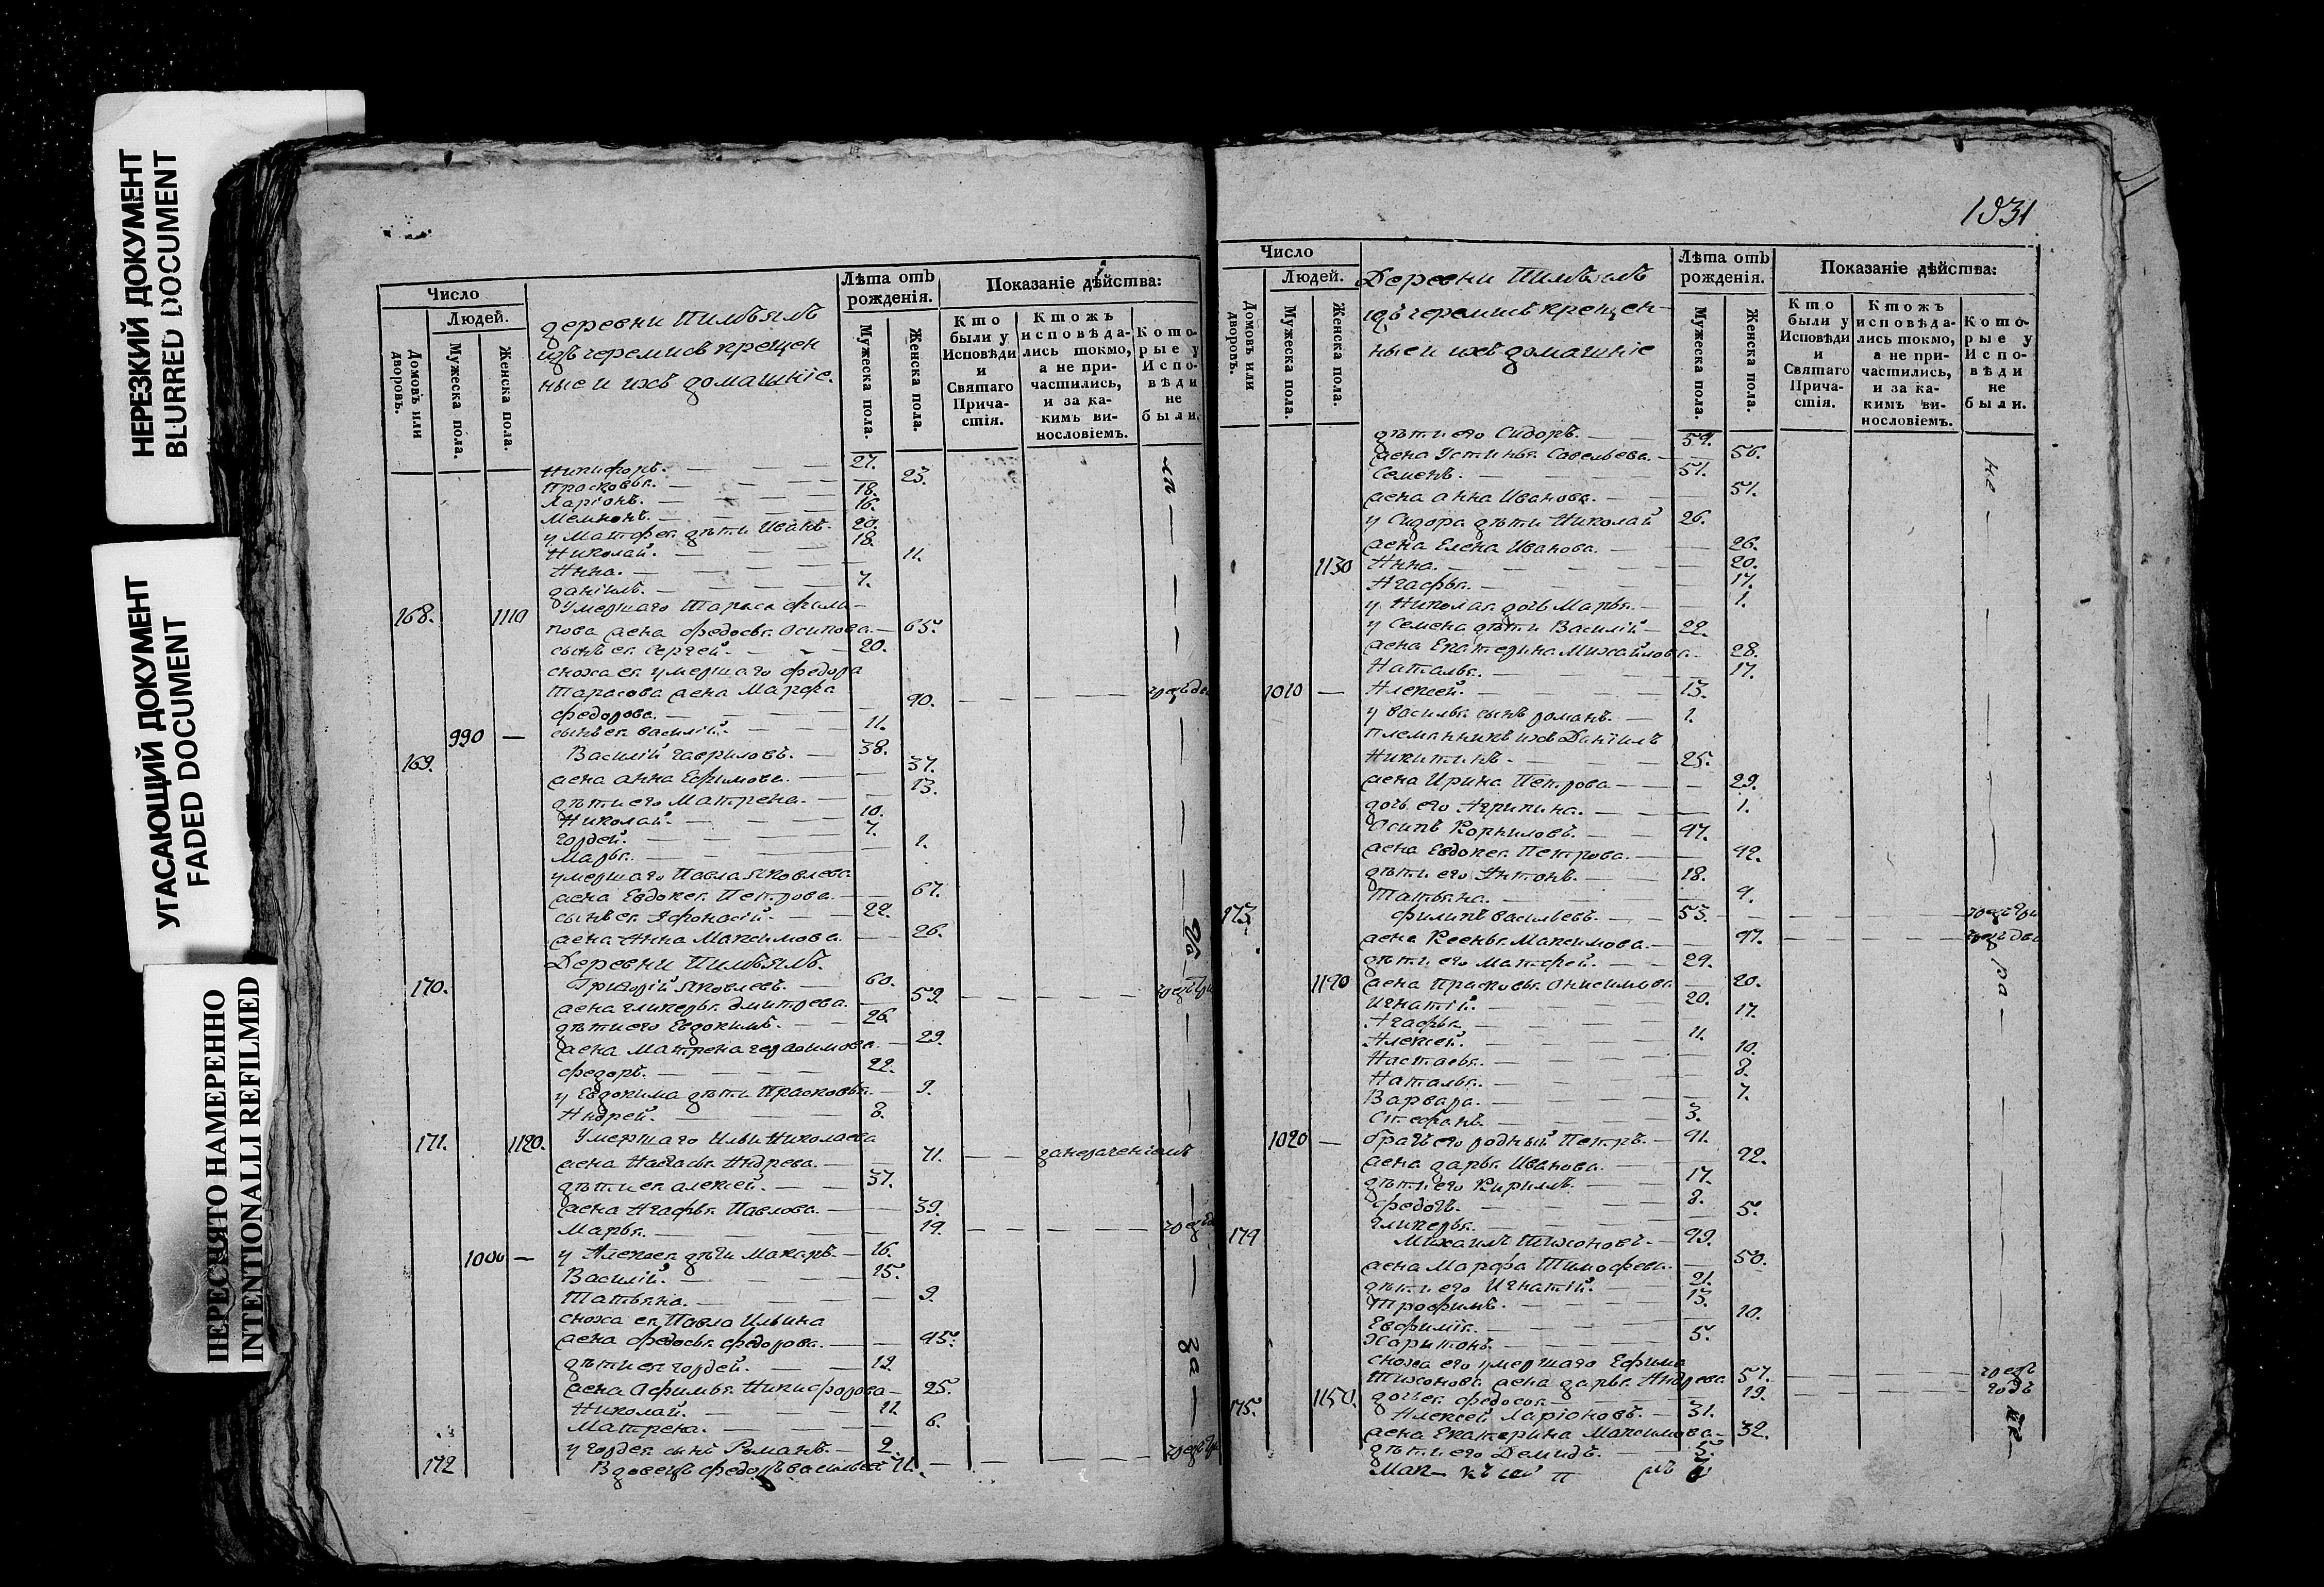 НЕРЕЗКИЙ ДОКУМЕНТ
BLURRED DOCUMENT
УГАСАЮЩИЙ ДОКУМЕНТ
FADED DOCUMENT
ПЕРЕСНЯТО НАМЕРЕННО
INTENTIONALLI REFILMED
Число
Людей.
Домовъ или дворовъ.
Мужеска пола.
Женска пола.
деревни Пилѣялъ
изъ черемисъ крещен
ные и ихъ домашніе.
Лѣта отъ рожденія.
Мужеска пола.
Женска пола.
Показаніе дѣйства:
Кто были у Исповѣди и Святаго Причастія.
Ктожъ исповѣдались токмо, а не причастились, и за какимъ винословіемъ.
Которые у Исповѣди не были.
Никифоръ. 27.
Прасковья. 23.
Ларіонъ. 18.
Мемнонъ. 16.
у Матфея дѣти Иванъ. 20.
Николай. 18.
Анна. 11.
Даніилъ. 7.
168. 1110 Умершаго Тараса Фили-
пова жена Федосья Осипова. 65.
сынъ ея Сергей. 20.
сноха ея умершаго Федора
Тарасова жена Марфа
Федорова. 40.
990 сынъ ея Василій. 11.
169. Василій Гавриловъ. 38.
жена Анна Ефимова. 37.
дѣти его Матрена. 13.
Николай. 10.
Гордей. 7.
Марья. 1.
умершаго Павла Яковлева
жена Евдокея Петрова. 67.
сынъ ея Афонасій. 22.
жена Анна Максимова. 26.
Деревни Пилѣялъ.
170. Григорій Яковлевъ. 60.
жена Гликерья Дмитрева. 59.
дѣти его Евдокимъ. 26.
жена Матрена Герасимова. 29.
Федоръ. 22.
у Евдокима дѣти Прасковья. 9.
Андрей. 3.
171. 1120. Умершаго Ильи Николаева
жена Настасья Андрева. 71.
дѣти ея Алексей. 37.
жена Агафья Павлова. 39.
Марья. 19.
1000 у Алексея дѣти Макаръ. 16.
Василій. 15.
Татьяна. 9.
сноха ея Павла Ильина
жена Федосья Федорова. 45.
дѣти ея Гордей. 19.
жена Афимья Никифорова 25.
Николай. 11
Матрена. 6.
у Гордея сынъ Романъ. 2.
172 Вдовецъ Федоръ Васильевъ 71.
1031
Число
Людей.
Домовъ или дворовъ.
Мужеска пола.
Женска пола.
Деревни Пилѣялъ
изъ черемисъ крещен-
ные и ихъ домашніе
Лѣта отъ рожденія.
Мужеска пола.
Женска пола.
Показаніе дѣйства:
Кто были у Исповѣди и Святаго Причастія.
Ктожъ исповѣдались токмо, а не причастились, и за какимъ винословіемъ.
Которые у Исповѣди не были.
дѣти его Сидоръ. 54.
жена Устинья Савельева. 56.
Семенъ. 51.
жена Анна Иванова. 51.
у Сидора дѣти Николай 26.
жена Елена Иванова. 26.
1130 Анна. 20.
Агафья. 17.
у Николая дочь Марья. 1.
у Семена дѣти Василій 22.
жена Екатерина Михайлова. 28.
Наталья. 17.
1010 Алексей. 13.
у Василья сынъ Романъ. 1.
племянникъ ихъ Даніилъ
Никитинъ. 25.
жена Ирина Петрова 29.
дочь его Агрипина. 1.
Осипъ Корниловъ. 47.
жена Евдокея Петрова. 42.
дѣти его Антонъ. 18.
Татьяна. 9.
173. Филипъ Васильевъ. 53.
жена Ксенья Максимова. 47.
дѣти его Матфей. 29.
1140 жена Прасковья Онисимова 20.
Игнатій. 20.
Агафья. 17.
Алексей. 11.
Настасья. 10.
Наталья. 8.
Варвара. 7.
Стефанъ. 3.
1020 братъ его родный Петръ. 41.
жена Дарья Иванова. 42.
дѣти его Кирилъ. 17.
Федотъ. 8.
Гликерья. 5.
174 Михаилъ Тихоновъ. 49.
жена Марфа Тимофева. 50.
дѣти его Игнатій. 21.
Трофимъ. 13.
Евфимія. 10.
Харитонъ. 5.
сноха его умершаго Ефима
Тихонова жена Дарья Андрева 57.
1150. дочь ея Федосья. 19.
175. Алексей Ларіоновъ. 31.
жена Екатерина Максимова 32.
дѣти его Демидъ. 5.